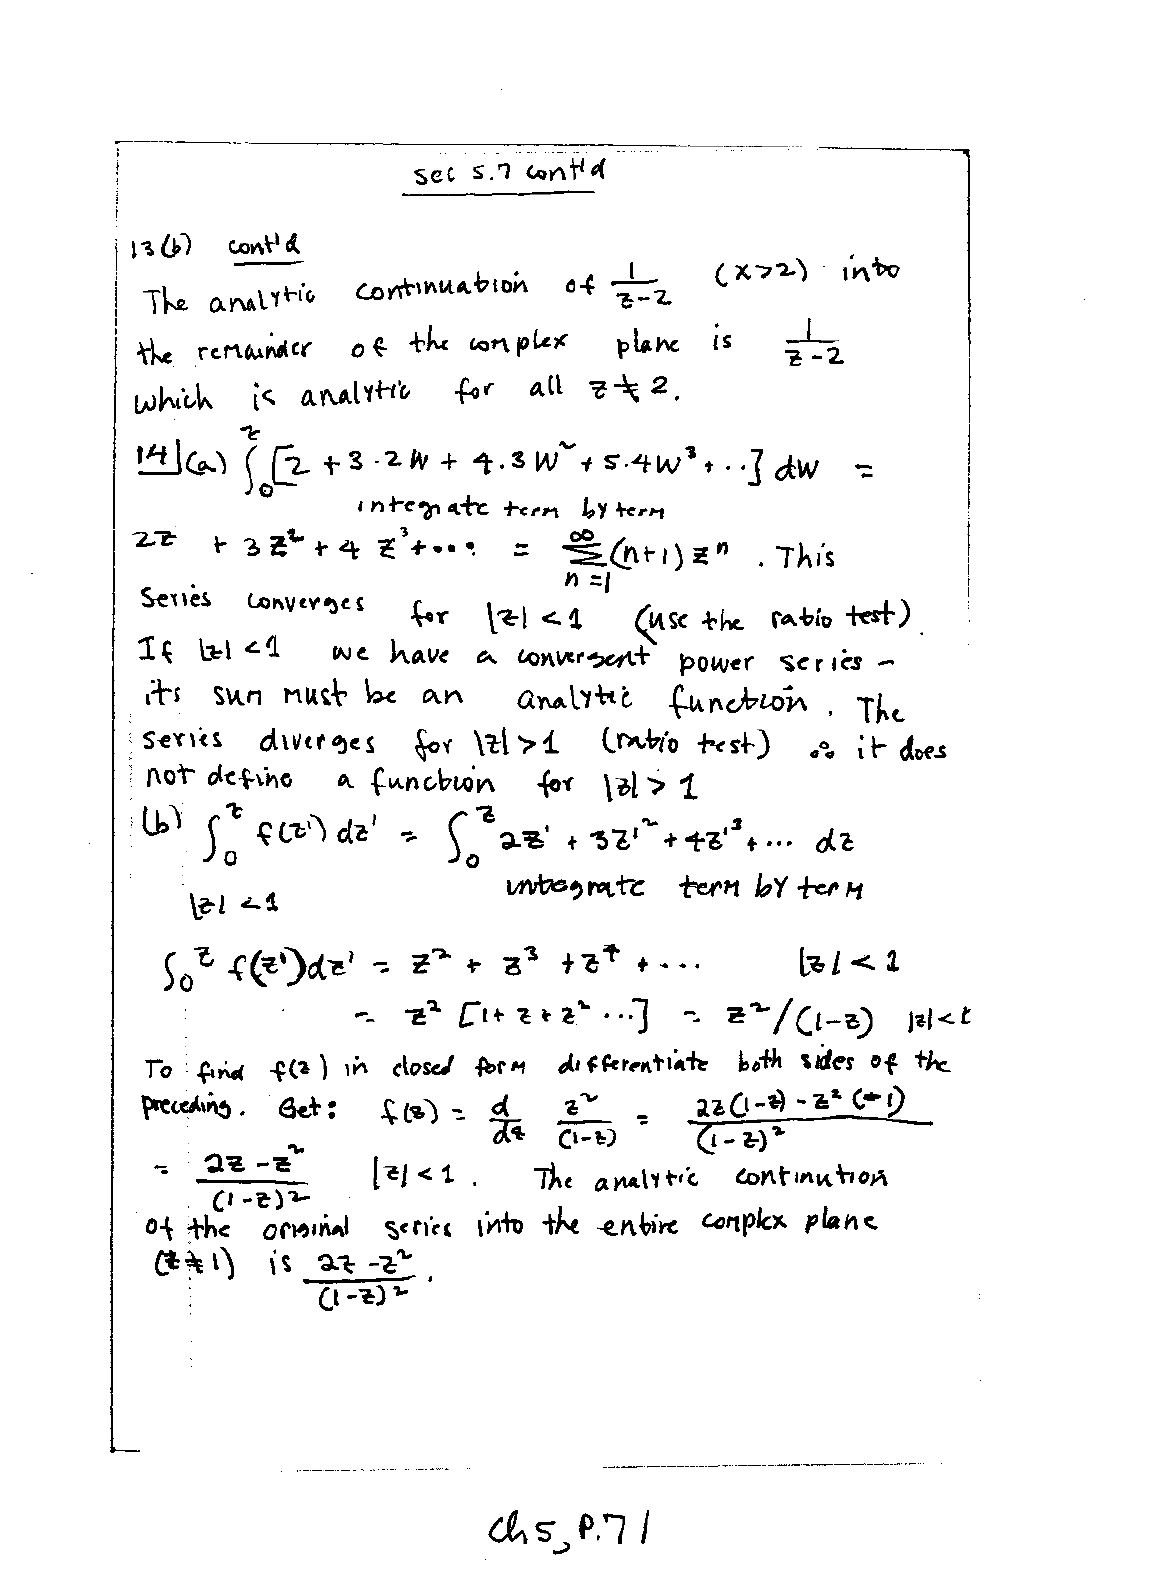 Sec 5.7 cont'd
13(b) cont'd
The analytic continuation of 1/(z-2) (x>2) into
the remainder of the complex plane is 1/(z-2)
which is analytic for all z≠2.
14|(a) ∫₀ᶻ [2 + 3·2w + 4·3w² + 5·4w³ + ··] dw =
integrate term by term
2z + 3z² + 4z³ + ··· = Σ_{n=1}^{∞} (n+1) zⁿ. This
series converges for |z|<1 (use the ratio test).
If |z|<1 we have a convergent power series –
its sum must be an analytic function. The
series diverges for |z|>1 (ratio test) ∴ it does
not define a function for |z|>1
(b) ∫₀ᶻ f(z')dz' = ∫₀ᶻ 2z' + 3z'² + 4z'³ + ··· dz
integrate term by term
|z|<1
∫₀ᶻ f(z')dz' = z² + z³ + z⁴ + ···   |z|<1
= z² [1+z+z² ···] = z²/(1-z)   |z|<1
To find f(z) in closed form differentiate both sides of the
preceding. Get: f(z) = d/dz z²/(1-z) = (2z(1-z) - z²(-1))/(1-z)²
= (2z - z²)/(1-z)²   |z|<1. The analytic continution
of the original series into the entire complex plane
(z≠1) is (2z - z²)/(1-z)².
Ch 5, P.71